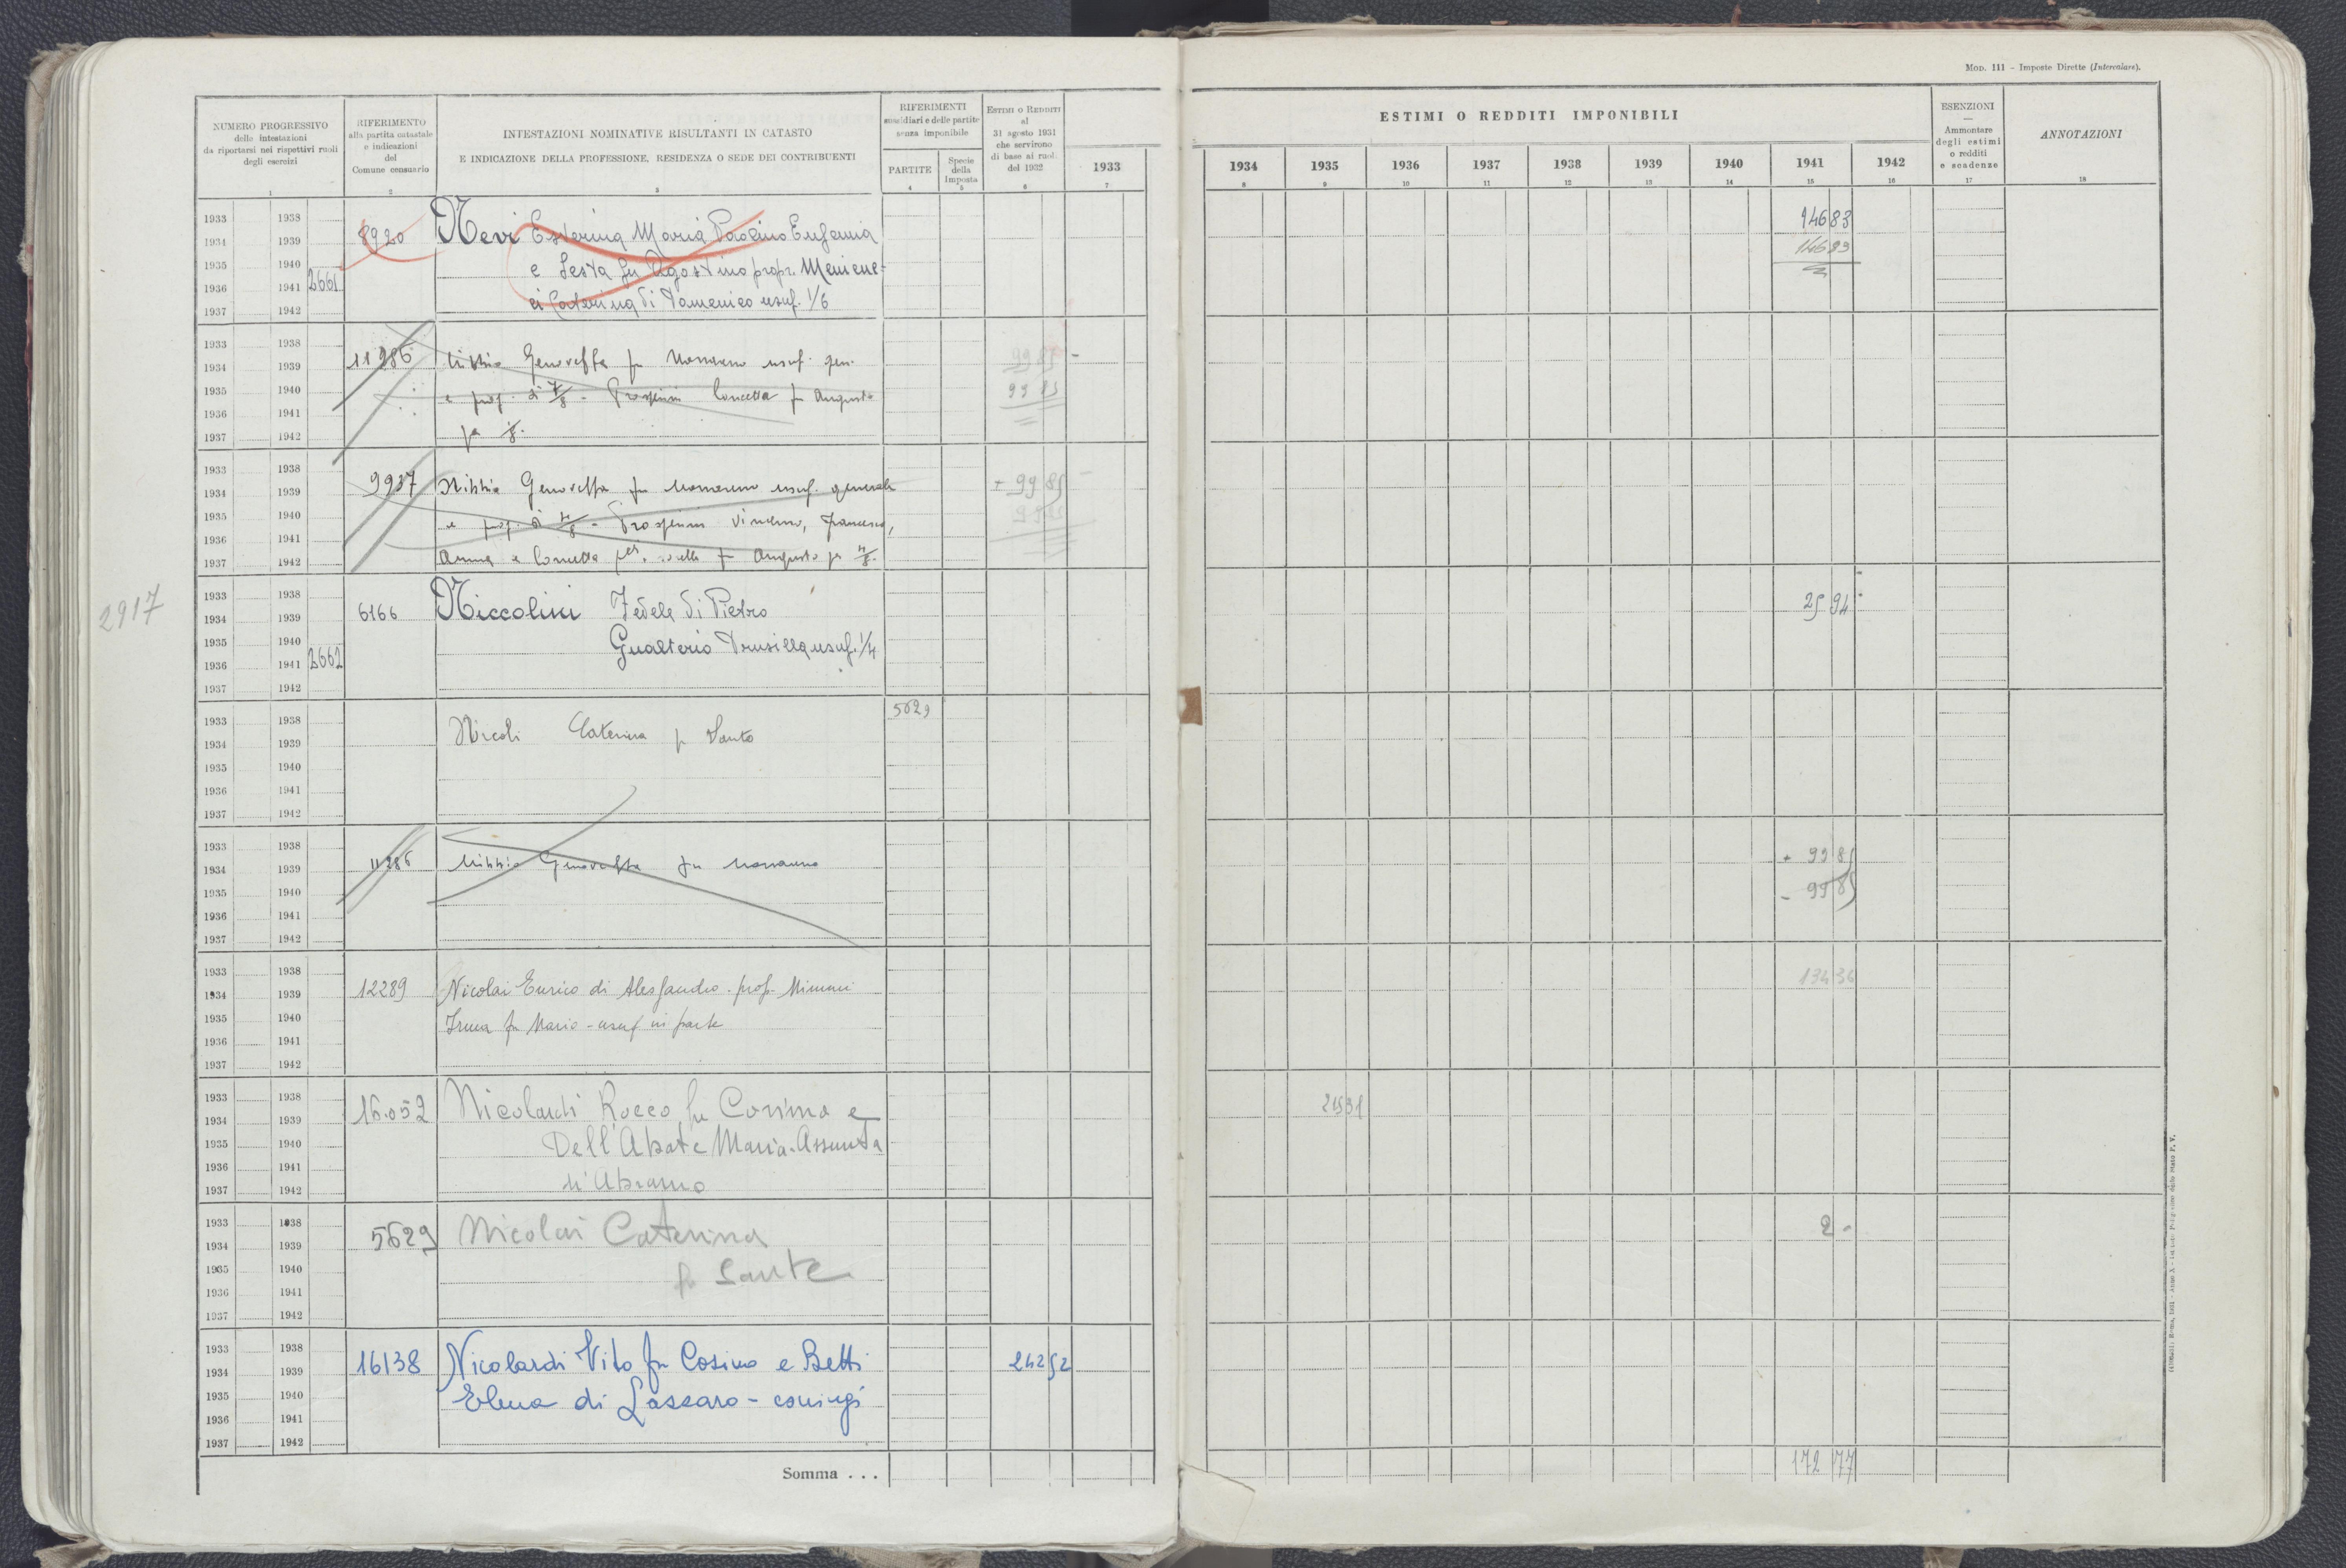 MOD. 111 – Imposte Dirette (Intercalare).
NUMERO PROGRESSIVO
delle intestazioni
da riportarsi nei rispettivi ruoli
degli esercizi
1
RIFERIMENTO
alla partita catastale
e indicazioni
del
Comune censuario
2
INTESTAZIONI NOMINATIVE RISULTANTI IN CATASTO
E INDICAZIONE DELLA PROFESSIONE, RESIDENZA O SEDE DEI CONTRIBUENTI
3
RIFERIMENTI
sussidiari e delle partite
senza imponibile
PARTITE
4
Specie
della
Imposta
5
ESTIMI O REDDITI
al
31 agosto 1931
che servirono
di base ai ruoli
del 1932
6
1933
7
ESTIMI O REDDITI IMPONIBILI
1934 1935 1936 1937 1938 1939 1940 1941 1942
8 9 10 11 12 13 14 15 16
ESENZIONI
—
Ammontare
degli estimi
o redditi
e scadenze
17
ANNOTAZIONI
18
1933 1938 14683
1934 1939 8920 Nevi Esterina Maria Paolino Eugenia 14683
1935 1940 e Sesta fu Agostino propr. Menicuc=
1936 1941 2661
1937 1942 ci Caterina di Domenico usuf. 1/6
1933 1938
1934 1939 11986 Genoveffa fu usuf. gen. 9985
1935 1940 e prop. di 7/8 - Prosperini Concetta fu Augusto 9985
1936 1941
1937 1942 per 1/8.
1933 1938
1934 1939 9937 Genoveffa fu usuf. generale + 9985
1935 1940 e prop. di 4/8 - Prosperini Francesco, 9985
1936 1941
1937 1942 Anna e Concetta sorelle fu Augusto per 4/8.
2917
1933 1938
1934 1939 6166 Niccolini Fedele di Pietro 2594
1935 1940 Gualterio Drusilla usuf. 1/4
1936 1941 2662
1937 1942
1933 1938 5629
1934 1939 Nicoli Caterina fu Santo
1935 1940
1936 1941
1937 1942
1933 1938 + 9985
1934 1939 11286 Genoveffa fu
1935 1940 - 9985
1936 1941
1937 1942
1933 1938 13434
1934 1939 12289 Nicolai Enrico di Alessandro - prop. Mimmi
1935 1940 Irma fu Mario - usuf in parte
1936 1941
1937 1942
1933 1938
1934 1939 16.052 Nicolardi Rocco fu Cosimo e 21531
1935 1940 Dell'Abate Maria-Assunta
1936 1941
1937 1942 di Abramo
1933 1938 2 -
1934 1939 5629 Nicolai Caterina
1935 1940 fu Sante
1936 1941
1937 1942
1933 1938
1934 1939 16138 Nicolardi Vito fu Cosimo e Betti 24252
1935 1940 Elena di Lazzaro - coniugi
1936 1941
1937 1942
Somma . . . 172 77